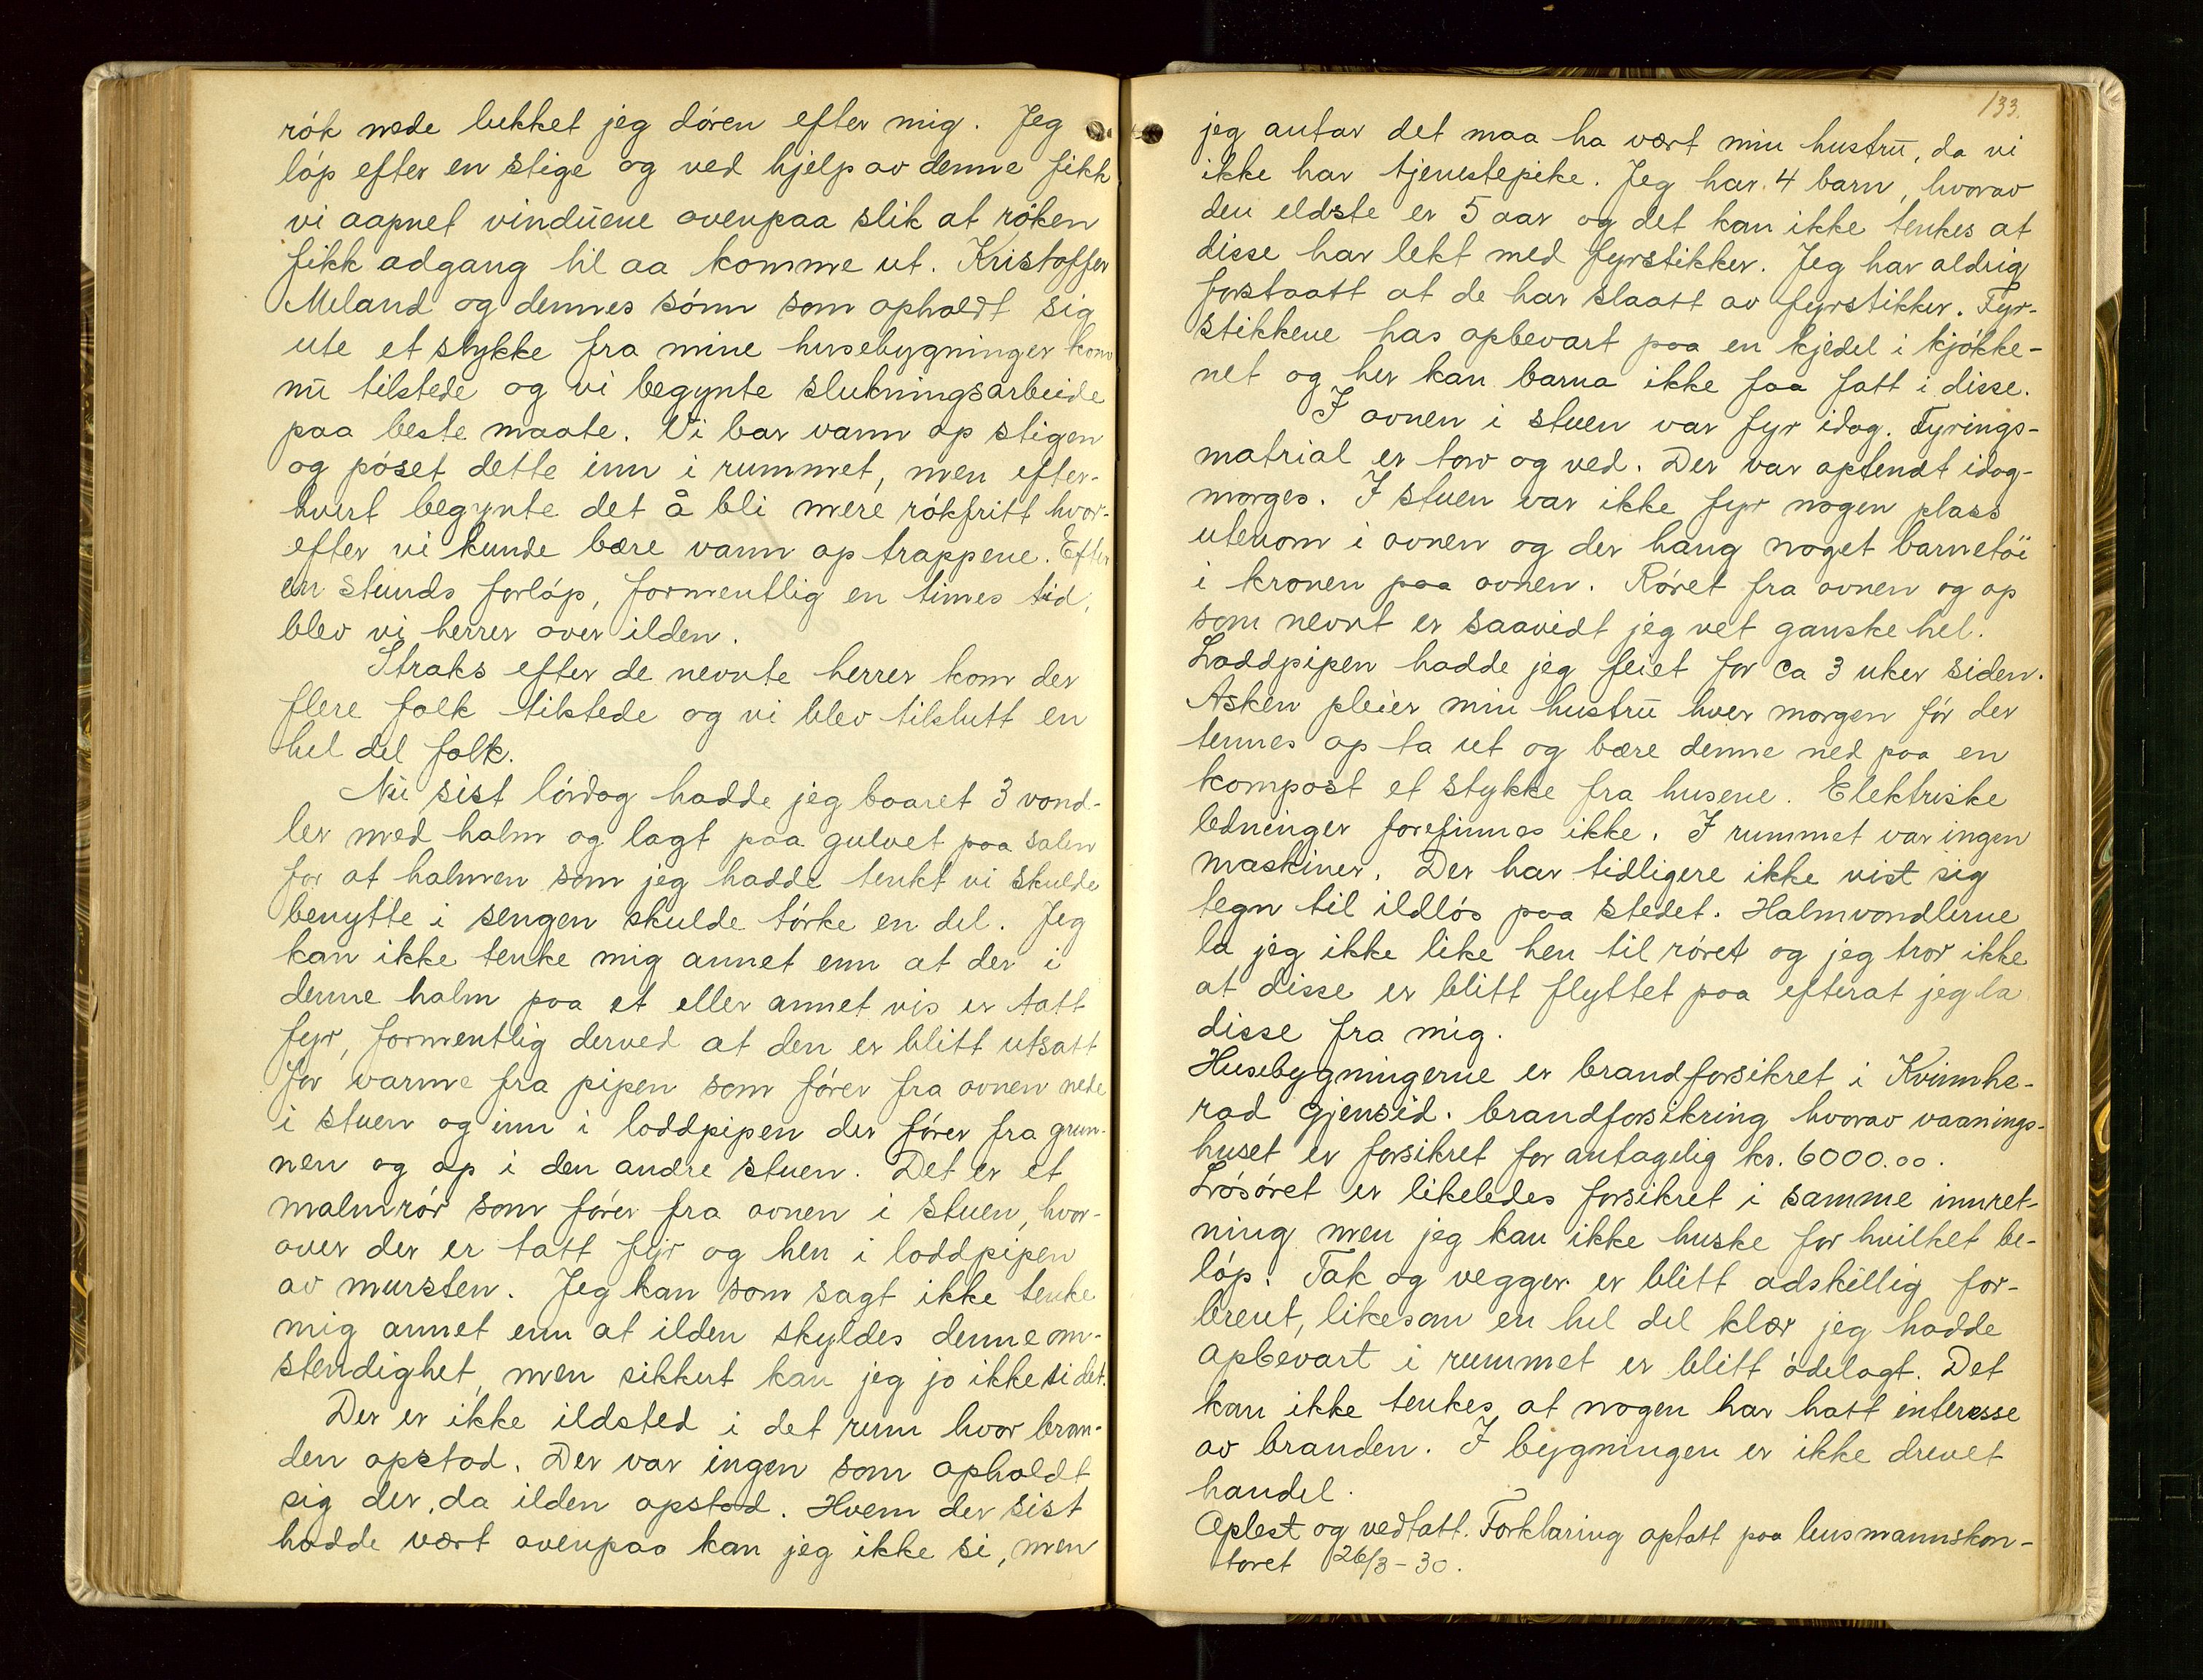 rók nede lukket jeg dóren efter mig. Jeg
lóp efter en stige og ved hjelp av denne fikk
vi aapnet vinduene ovenpaa slik at röken
fikk adgang til aa komme ut. Kristoffer
Meland og dennes sónn som opholdt sig
ute et stykke fra mine husebygninger kom
nu tilstede og vi begynte slukningsarbeide
paa beste maate. Vi bar vann op stigen
og póset dette inn i rummet, men efter-
hvert begynte det å bli mere rókfritt hvor-
efter vi kunde bære vann op trappene. Efter
en stunds forlóp, formentlig en times tid,
blev vi herrer over ilden.
Straks efter de nevnte herrer kom der
flere folk tilstede og vi blev tilslutt en
hel del folk.
Nu sist lórdag hadde jeg baaret 3 vond-
ler med halm og lagt paa gulvet paa salen
for at halmen som jeg hadde tenkt vi skulde
benytte i sengen skulde tórke en del. Jeg
kan ikke tenke mig annet enn at der i
denne halm paa et eller annet vis er tatt
fyr, formentlig derved at den er blitt utsatt
for varme fra pipen som fórer fra ovnen nede
i stuen og inn i loddpipen der fórer fra grun-
nen og op i den andre stuen. Det er et
malmrór som fórer fra ovnen i stuen, hvor-
over der er tatt fyr og hen i loddpipen
av mursten. Jeg kan som sagt ikke tenke
mig annet enn at ilden skyldes denne om-
stendighet, men sikkert kan jeg jo ikke si det.
Der er ikke ildsted i det rum hvor bran-
den opstod. Der var ingen som opholdt
sig der, da ilden opstod. Hvem der sist
hadde vært ovenpaa kan jeg ikke si, men
133.
jeg antar det maa ha vært min hustru, da vi
ikke har tjenestepike. Jeg har 4 barn, hvorav
den eldste er 5 aar og det kan ikke tenkes at
disse har lekt med fyrstikker. Jeg har aldrig
forstaatt at de har slaatt av fyrstikker. Fyr-
stikkene has opbevart paa en kjedel i kjókke-
net og her kan barna ikke faa fatt i disse.
I ovnen i stuen var fyr idag. Fyrings-
matrial er torv og ved. Der var optendt idag-
morges. I stuen var ikke fyr nogen plass
utenom i ovnen og der hang noget barnetöi
i kronen paa ovnen. Róret fra ovnen og op
som nevnt er saavidt jeg vet ganske hel.
Loddpipen hadde jeg feiet for ca 3 uker siden.
Asken pleier min hustru hver morgen fór der
tennes op ta ut og bære denne ned paa en
kompost et stykke fra husene. Elektriske
ledninger forefinnes ikke. I rummet var ingen
maskiner. Der har tidligere ikke vist sig
tegn til ildlós paa stedet. Halmvondlerne
la jeg ikke like hen til róret og jeg tror ikke
at disse er blitt flyttet paa efterat jeg la
disse fra mig.
Husebygningerne er brandforsikret i Kvinnhe-
rad Gjensid. brandforsikring hvorav vaanings-
huset er forsikret for antagelig kr. 6000.00.
Lósóret er likeledes forsikret i samme innret-
ning men jeg kan ikke huske for hvilket be-
lóp. Tak og vegger er blitt adskillig for-
brent, likesom en hel del klær jeg hadde
opbevart i rummet er blitt ódelagt. Det
kan ikke tenkes at nogen har hatt interesse
av branden. I bygningen er ikke drevet
handel.
Oplest og vedtatt. Forklaring optatt paa lensmannskon-
toret 26/3-30.